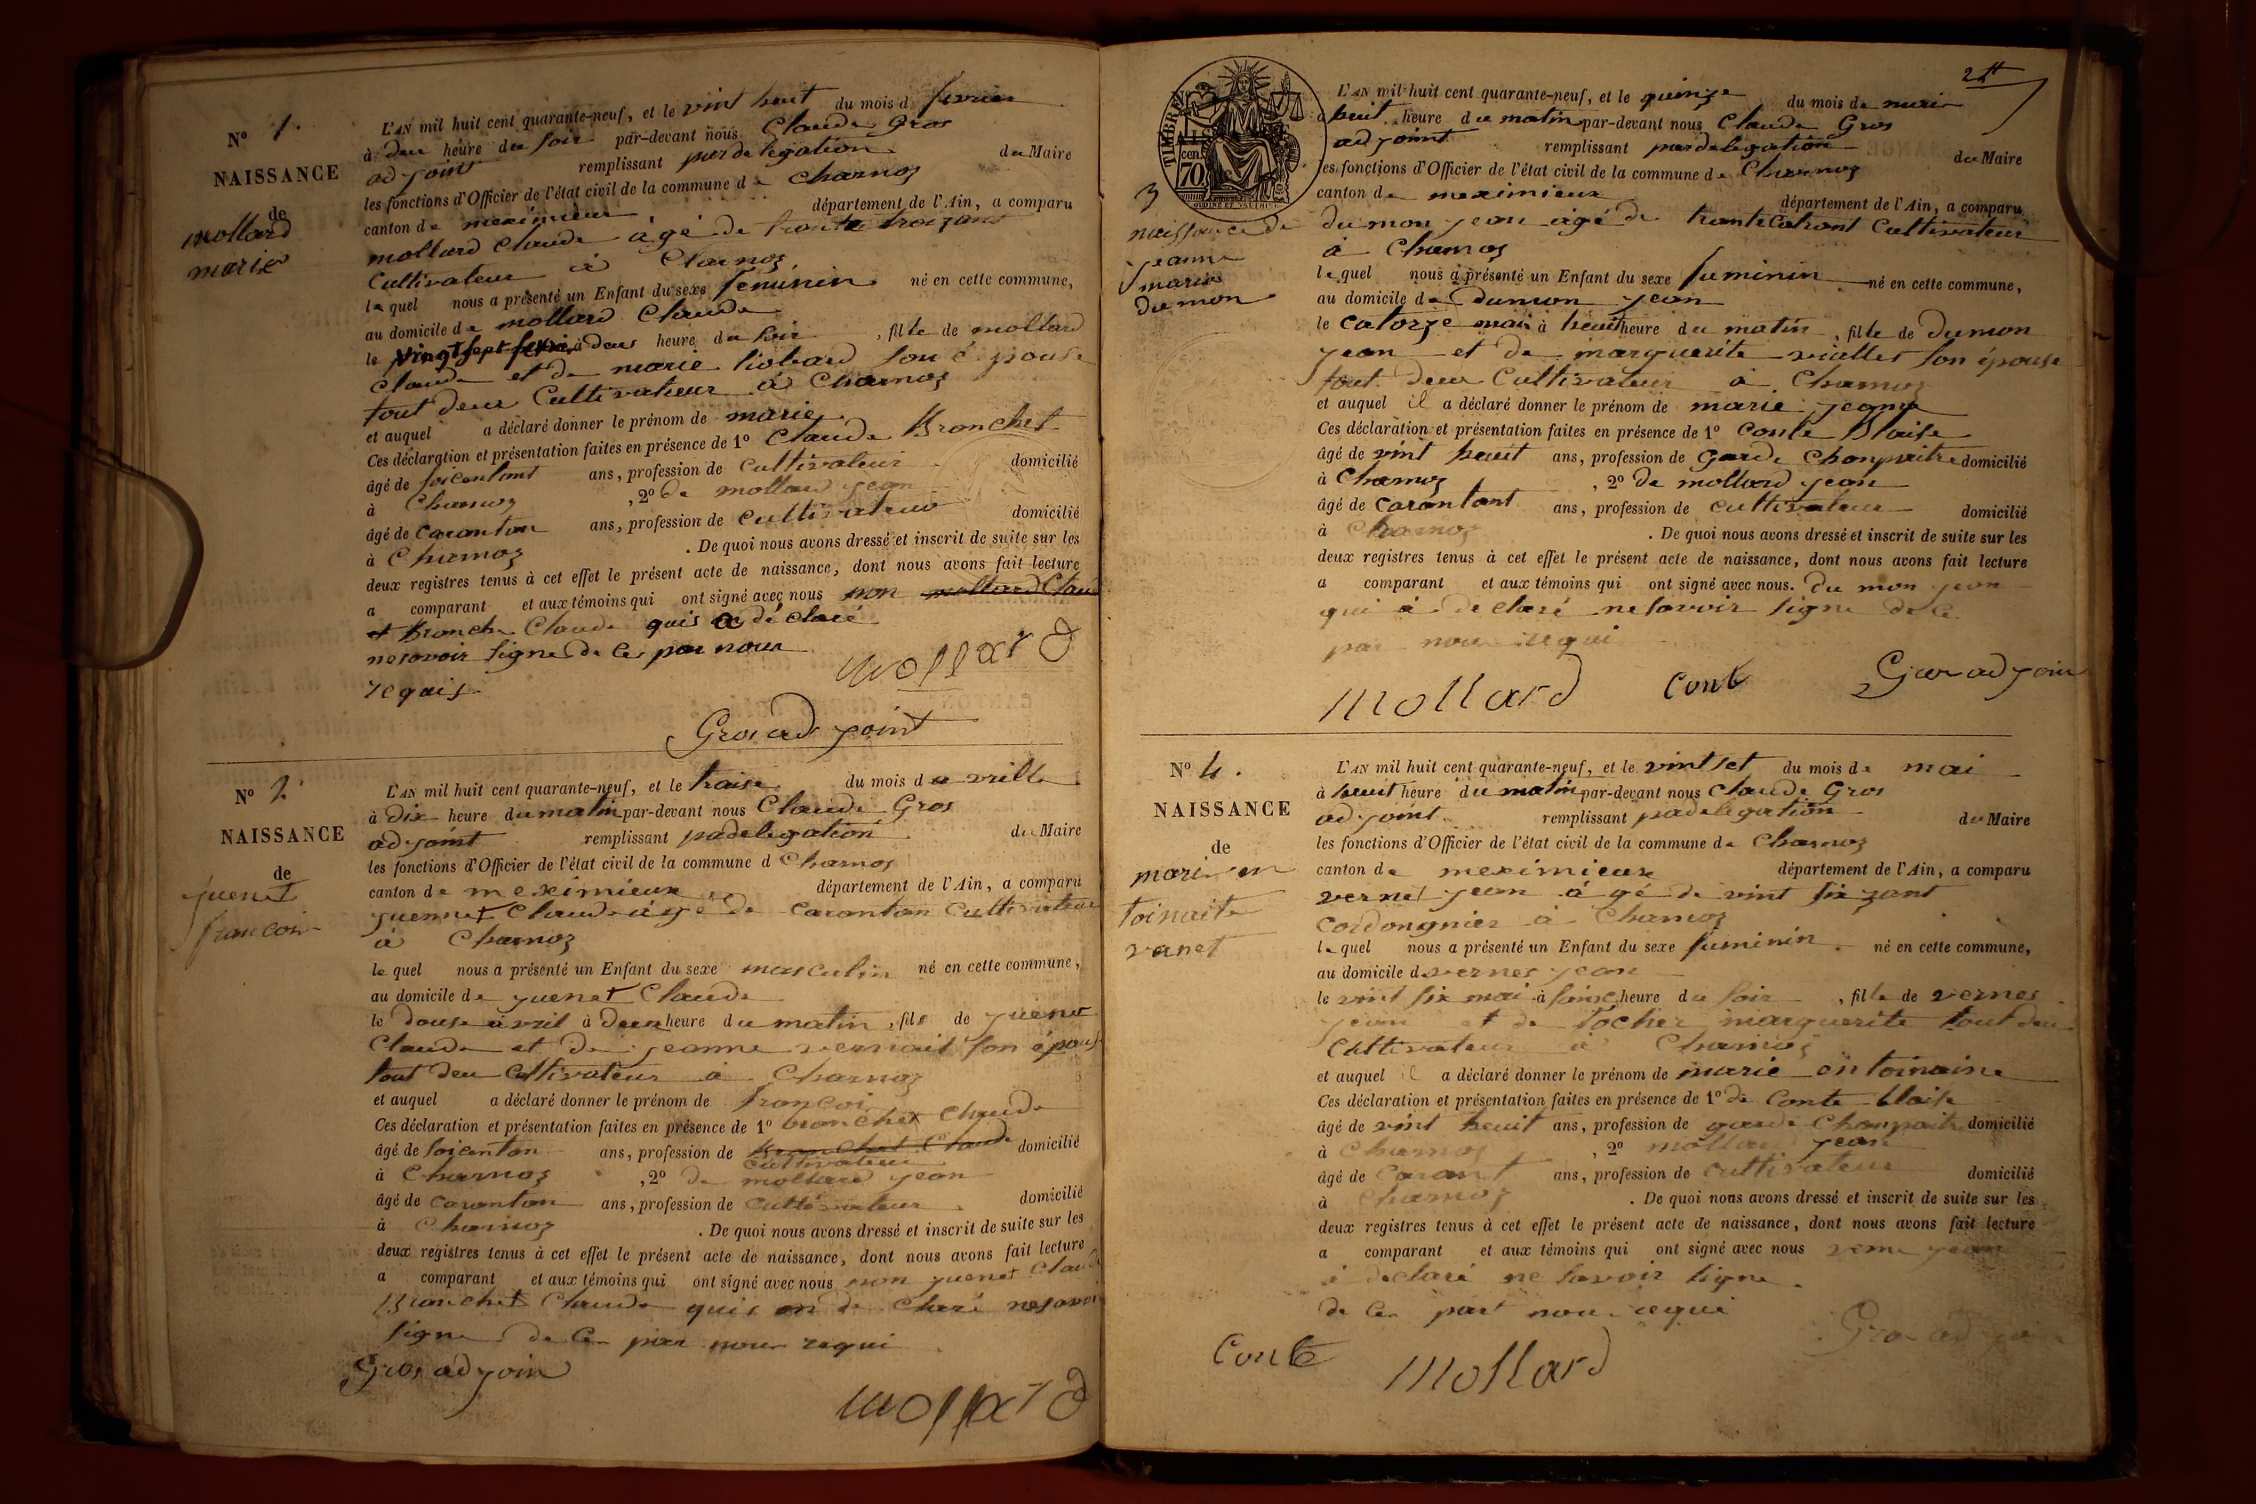 N° 1.
NAISSANCE
de
mollard
marie
L'AN mil huit cent quarante-neuf, et le vint huit du mois d fevrier
à deu heure du soir par-devant nous Claude Gros
adjoint remplissant par delegation du Maire
les fonctions d'Officier de l'état civil de la commune de Charnoz
canton de meximieux département de l'Ain, a comparu
mollard Claude âgé de trante troizans
Cultivateur à Charnoz
lequel nous a présenté un Enfant du sexe feminin né en cette commune,
au domicile de mollard Claude
le vingt sept fevrié à deus heure du soir, fille de mollard
Claude et de marie liobard son épouse
tout deux Cultivateur à Charnoz
et auquel a déclaré donner le prénom de marie
Ces déclaration et présentation faites en présence de 1° Claude Bronchet
âgé de soicentant ans, profession de Cultivateur domicilié
à Charnoz, 2° de mollard jean
âgé de carantan ans, profession de Cultivateur domicilié
à Charnoz. De quoi nous avons dressé et inscrit de suite sur les
deux registres tenus à cet effet le présent acte de naissance, dont nous avons fait lecture
a comparant et aux témoins qui ont signé avec nous non mollard Claud
et Bronche Claude quis a déclaré
nesavoir signe de ce par nour
requis
mollard
Gros adjoint
N° 2
NAISSANCE
de
juenet
francois
L'AN mil huit cent quarante-neuf, et le traise du mois d avrille
à Dix heure du matin par-devant nous Claude Gros
adjoint remplissant padelegation du Maire
les fonctions d'Officier de l'état civil de la commune d Charnoz
canton de meximieux département de l'Ain, a comparu
juennet Claude âgé de carantan Cultivateur
à Charnoz
lequel nous a présenté un Enfant du sexe masculin né en cette commune,
au domicile de juenet Claude
le douse avril à deux heure du matin, fils de juenet
Claude et de jeanne vernait son épouse
tout deu Cultivateur à Charnoz
et auquel a déclaré donner le prénom de françoi
Ces déclaration et présentation faites en présence de 1° bronchet Claude
âgé de soicantan ans, profession de Bronchet Claude domicilié
cultivateur
à Charnoz, 2° de mollard jean
âgé de carantan ans, profession de Cultivateur domicilié
à Charnoz. De quoi nous avons dressé et inscrit de suite sur les
deux registres tenus à cet effet le présent acte de naissance, dont nous avons fait lecture
a comparant et aux témoins qui ont signé avec nous non juenet Claud
Bronchet Claude quis on de Claré nesavoir
signe de Ce par nour requi
Gros adjoin
mollard
2
TIMBRE
cen. 70
3
naissance de
jeanne
marie
dumon
L'AN mil huit cent quarante-neuf, et le quinze du mois de mai
à heuit heure du matin par-devant nous Claude Gros
adjoint remplissant pardelegation du Maire
les fonctions d'Officier de l'état civil de la commune de Charnoz
canton de meximieux département de l'Ain, a comparu
dumon jean âgé de trantecatrant Cultivateur
à Charnoz
lequel nous a présenté un Enfant du sexe fuminin né en cette commune,
au domicile de Dumon jean
le catorze mai à heuit heure du matin, fille de Dumon
jean et de marguerite viallet son épouse
tout deux Cultivateur à Charnoz
et auquel il a déclaré donner le prénom de marie jeanne
Ces déclaration et présentation faites en présence de 1° Conte Blaise
âgé de vint heuit ans, profession de garde Chanpaitre domicilié
à Charnoz, 2° de mollard jean
âgé de carantant ans, profession de cultivateur domicilié
à Charnoz. De quoi nous avons dressé et inscrit de suite sur les
deux registres tenus à cet effet le présent acte de naissance, dont nous avons fait lecture
a comparant et aux témoins qui ont signé avec nous. du mon jean
qui à de claré nesavoir signe de Ce
par nour requi
mollard Conte Gros adjoin
N° 4.
NAISSANCE
de
marie en
toinaite
vanet
L'AN mil huit cent quarante-neuf, et le vintset du mois de mai
à heuit heure du matin par-devant nous Claude Gros
adjoint remplissant padelegation du Maire
les fonctions d'Officier de l'état civil de la commune de Charnoz
canton de meximieux département de l'Ain, a comparu
vernet jean âgé de vint sixzant
cordongnier à Charnoz
lequel nous a présenté un Enfant du sexe fuminin né en cette commune,
au domicile d vernes jean
le vint six mai à sainc heure du soir, fille de vernes
jean et de rocher marguerite tout deu
Cultivateur à Charnoz
et auquel il a déclaré donner le prénom de marie entoinaine
Ces déclaration et présentation faites en présence de 1° de Conte blaise
âgé de vint heuit ans, profession de garde Chanpaitre domicilié
à Charnoz, 2° mollard jean
âgé de Carant ans, profession de cultivateur domicilié
à Charnoz. De quoi nous avons dressé et inscrit de suite sur les
deux registres tenus à cet effet le présent acte de naissance, dont nous avons fait lecture
a comparant et aux témoins qui ont signé avec nous verne jean
à declaré ne savoir signe.
de Ce part nour requi
Conte mollard Gros adjoin